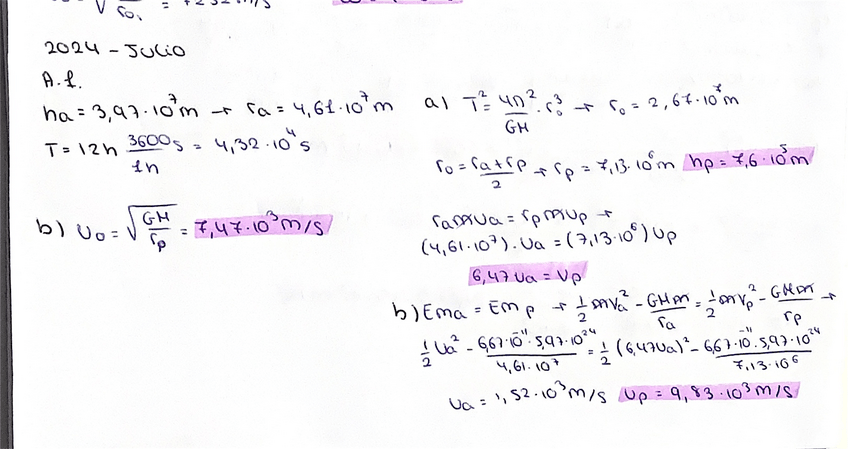 √ r₀,
2024 - JULIO
A.1.
ha = 3,97·10⁷m → ra = 4,61·10⁷m
T = 12h 3600s/1h = 4,32·10⁴s
b) v₀ = √(GM/rp) = 7,47·10³m/s
a) T² = 4π²/GM · r₀³ → r₀ = 2,67·10⁷m
r₀ = (ra + rp)/2 → rp = 7,13·10⁶m hp = 7,6·10⁵m
ra m va = rp m vp →
(4,61·10⁷)·va = (7,13·10⁶)vp
6,47va = vp
b) Ema = Emp → 1/2 mva² - GMm/ra = 1/2 mvp² - GMm/rp →
1/2 va² - 6,67·10⁻¹¹·5,97·10²⁴/4,61·10⁷ = 1/2 (6,47va)² - 6,67·10⁻¹¹·5,97·10²⁴/7,13·10⁶
va = 1,52·10³m/s vp = 9,83·10³m/s